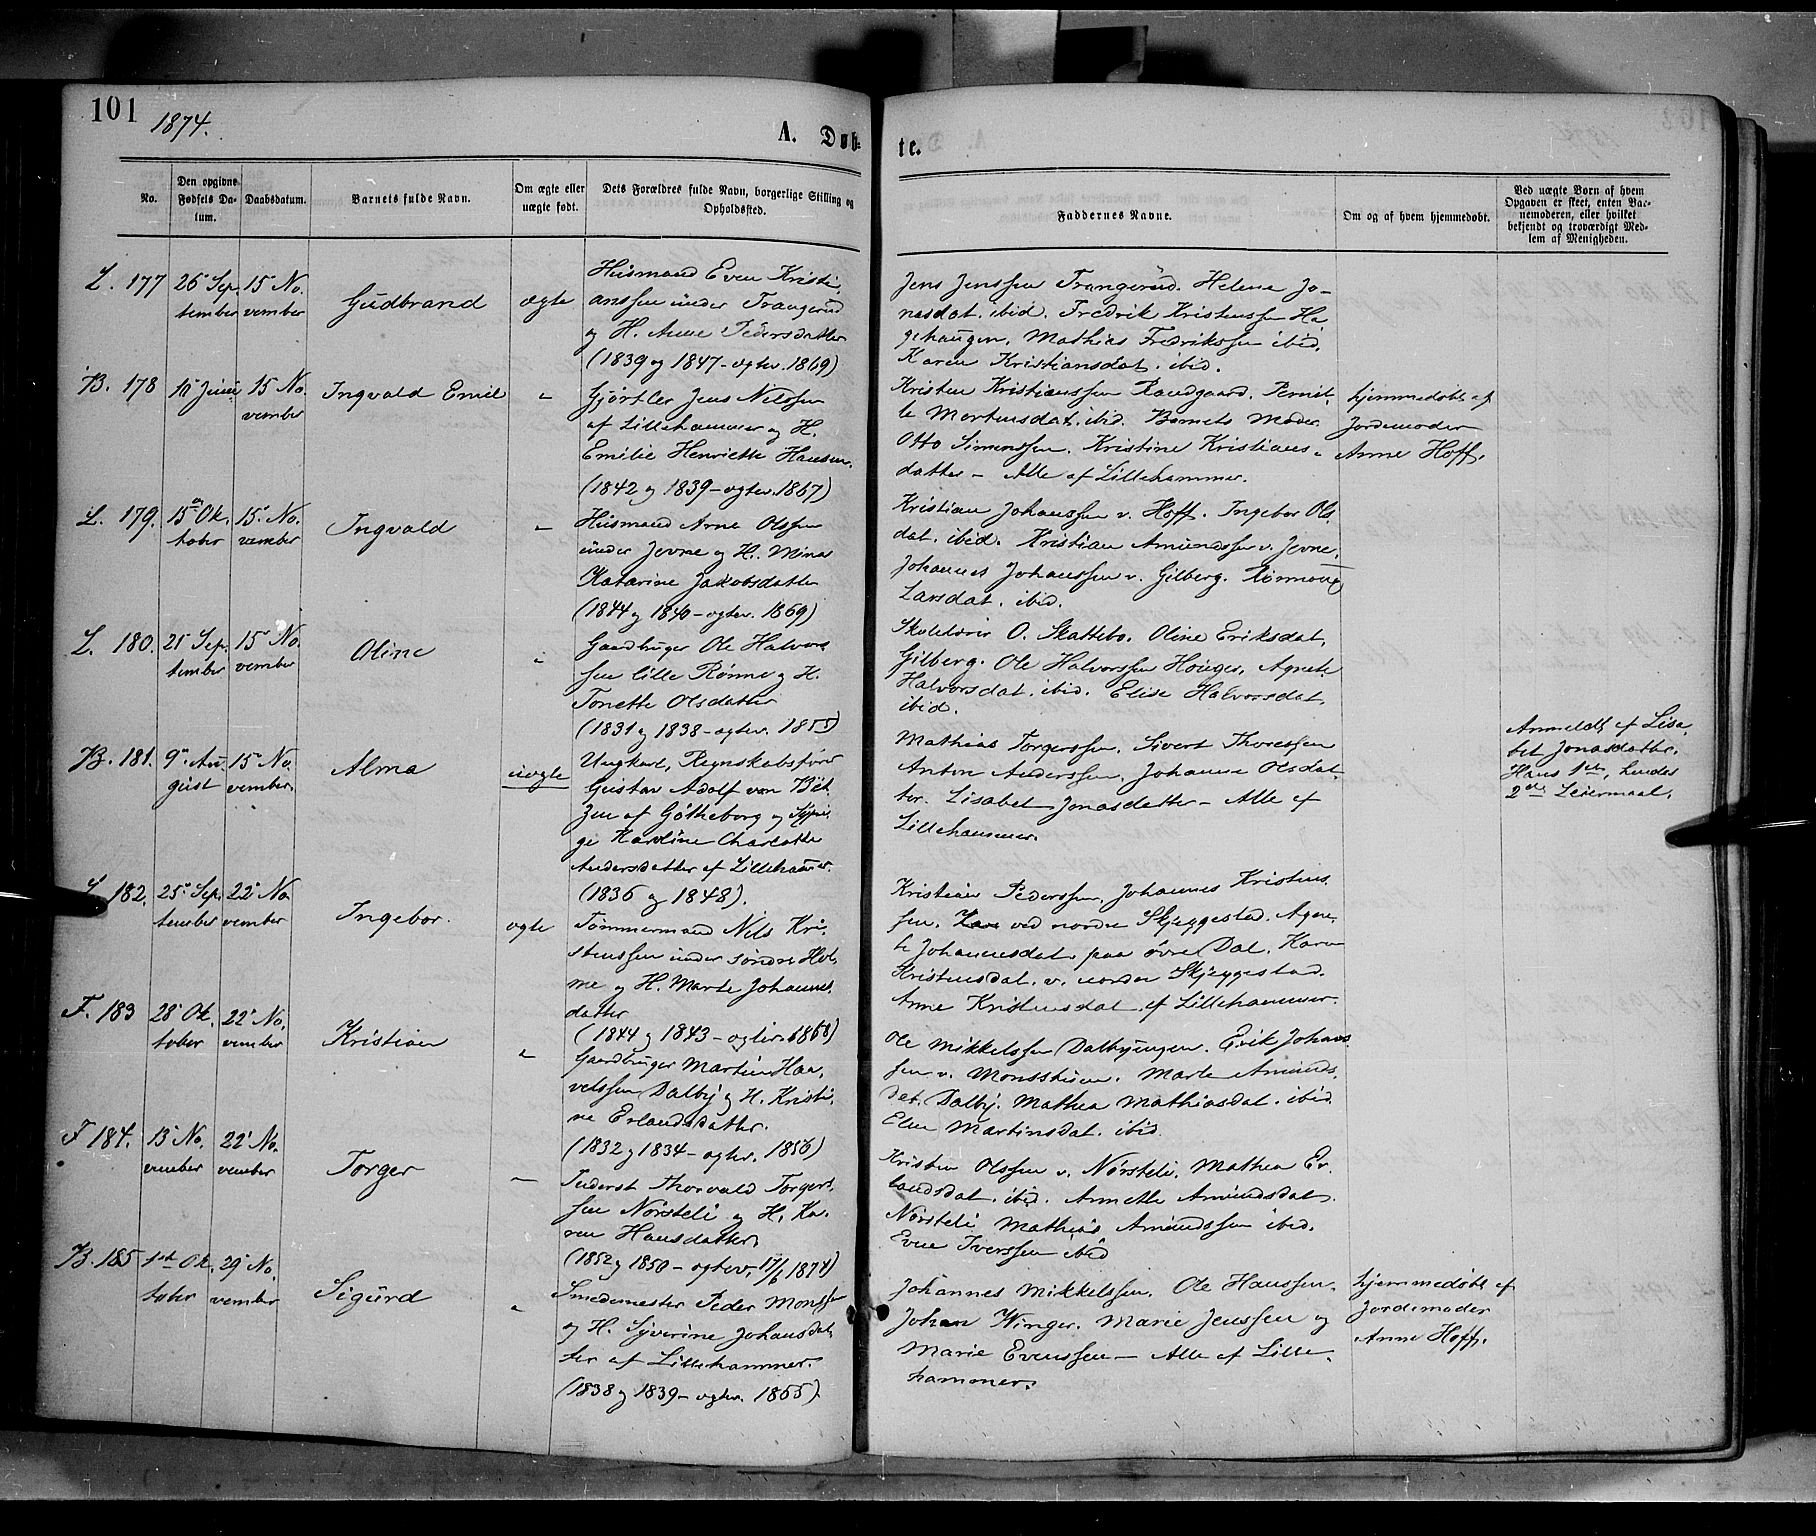 101
1874.
A. Døb-
te.
No.
Den opgivne Fødsels Da-
tum.
Daabsdatum.
Barnets fulde Navn.
Om ægte eller uægte født.
Dets Forældres fulde Navn, borgerlige Stilling og Opholdssted.
Faddernes Navne.
Om og af hvem hjemmedøbt.
Ved uægte Børn af hvem Opgaven er skeet, enten Bar-
nemoderen, eller hvilket bekjendt og troværdigt Med-
lem af Menigheden.
L. 177
26 Sep-
tember
15 No-
vember
Gudbrand
ægte
Husmand Even Kristi-
anssen under Trangerud
og H. Anne Pedersdatter
(1839 og 1847 - ægtev. 1869)
Jens Jenssen Trangerud. Helene Jo-
nasdat. ibid. Fredrik Kristenssen Ha-
gehaugen. Mathias Fredrikssen ibid.
Karen Kristiansdat. ibid.
B. 178
15 No-
vember
Ingvald Emil
"
Gjørtler Jens Nilssen
af Lillehammer og H.
Emilie Henriette Hansen.
(1842 og 1839 - ægtev. 1867)
Kristen Kristianssen Randgaard. Pernil-
le Mortensdat. ibid. Barnets Moder
Otto Simenssen. Kristine Kristians-
datter - Alle af Lillehammer.
hjemmedøbt af
Jordemoder
Anne Hoff.
L. 179.
15 Ok-
tober
15 No-
vember
Ingvald
"
Husmand Arne Olssen
under Jevne og H. Mina
Katarine Jakobsdatter
(1844 og 1840 - ægtev. 1869)
Kristian Johanssen v. Hoff. Ingebor Ols-
dat. ibid. Kristian Amundssen v. Jevne.
Johannes Johanssen v. Gilberg.
Larsdat. ibid.
L. 180.
21 Sep-
tember
15 No-
vember
Oline
"
Gaardbruger Ole Halvors-
sen lille Rønne og H.
Tonette Olsdatter
(1831 og 1838 - ægtev. 1855)
Skolelærer O. Skattebo. Oline Eriksdat.
Gilberg. Ole Halvorssen Houger, Agnete
Halvorsdat. ibid. Elise Halvorsdat.
ibid.
B. 181.
9 Au-
gust
15 No-
vember.
Alma
uægte
Ungkarl, Regnskabsfører
Gustav Adolf von
af Gøtheborg og Pi-
ge Karoline Charlotte
Andersdatter af Lillehammer.
(1836 og 1848).
Mathias Torgerssen, Sivert Thoressen
Anton Anderssen, Johanne Olsdat-
ter. Lisabet Jonasdatter - Alle af
Lillehammer.
Anmeldt af Lisa-
bet Jonasdatter.
Hans 1ste, hendes
2det Leiermaal.
L. 182.
25 Sep-
tember
22 No-
vember
Ingebor.
ægte
Tømmermand Nils Kri-
stenssen under søndre Hol-
me og H. Marte Johannes-
datter
(1844 og 1843 - ægtev. 1868)
Kristian Pederssen, Johannes Kristens-
sen. ved nordre Skjeggestad. Agne-
te Johannesdat. paa øvre Dal. Karen
Kristensdat. v. nordre Skjeggestad.
Anne Kristensdat. af Lillehammer.
F. 183
28 Ok-
tober
22 No-
vember
Kristian
"
Gaardbruger Martin Haa-
velssen Dalby og H. Kristi-
ne Erlandsdatter.
(1832 og 1834 - ægtev. 1856)
Ole Mikkelssen Dalbyengen. Erik Johans-
sen v. Monsstuen. Marte Amunds-
dat. Dalby. Mathea Mathiasdat. ibid
Elen Martinsdat. ibid.
F. 184.
13 No-
vember
22 No-
vember
Torger
"
Inderst Thorvald Torgers-
sen Nørsteli og H. Ka-
ren Hansdatter.
(1852 og 1850 - ægtev. 17/6 1874)
Kristen Olssen v. Nørsteli. Mathea Er-
landsdat. ibid. Annette Amundsdat.
Nørsteli Mathias Amundssen ibid.
Even Iverssen ibid
B. 185
1ste Ok-
tober
29 No-
vember
Sigurd
"
Smedemester Peder Monssen
og H. Syverine Johansdat-
ter af Lillehammer.
(1838 og 1839 - ægtev. 1865)
Johannes Mikkelssen. Ole Hanssen.
Johan Winger. Marie Jenssen og
Marie Evenssen - Alle af Lille-
hammer.
hjemmedøbt af
Jordemoder
Anne Hoff.